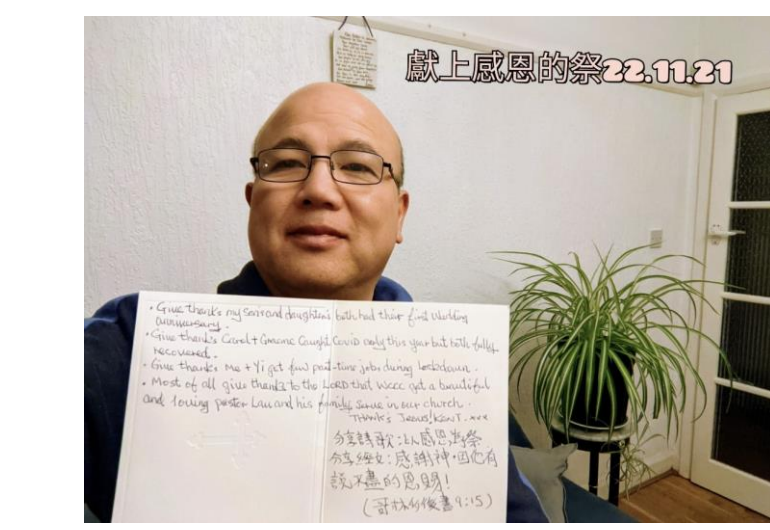 獻上感恩的祭22.11.21
• Give thanks my son and daughter's both had their first wedding
anniversary.
• Give thanks Carol + Graeme Caught Covid early this year but both fully
recovered.
• Give thanks me + Yi get few part-time jobs during lockdown.
• Most of all give thanks to the LORD that WCCC get a beautiful
and loving pastor Lau and his family serve in our church.
THANKS JESUS! KENT. xxx
分享詩歌:以感恩為祭
分享經文:感謝神,因他有
說不盡的恩賜!
(哥林多後書9:15)